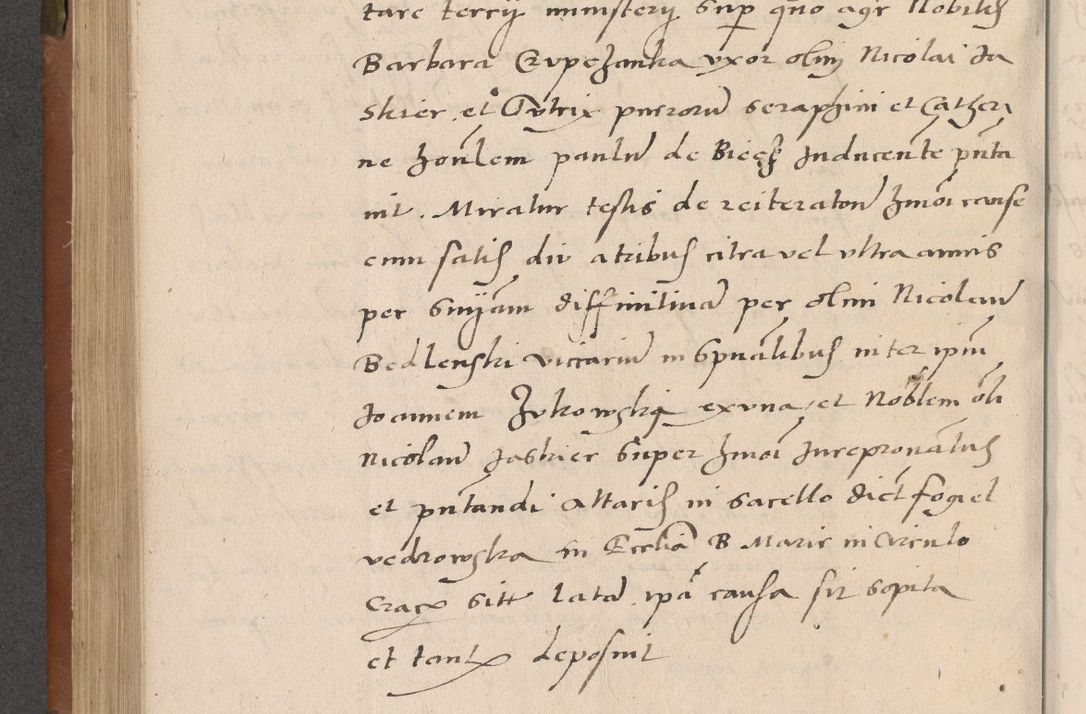 tare tercii ministerii Sup quo agr Nobilis
Barbara Czupezanka vxor olim Nicolai Ja
skier et Tutrix puerorum Seraphini et Cather
ne honlem paulum de Biecz Inducente pnta
uit. Miratur testis de reiteratione hmoi cause
cum satis diu a tribus citra vel vltra annis
per Snyam diffinitiuam per olim Nicolaum
Bedlenski viccarium in Spualibus inter ipm
Joannem Zukowski ex vna et Noblem oli
Nicolaum Jaskier Super hmoi Jurepronatus
et pntandi Altaris in sacello dict fogiel
vedrowska in Ecclia B Marie in Circulo
Crac Sitt lata. ipa causa sit sopita
et tant deposuit